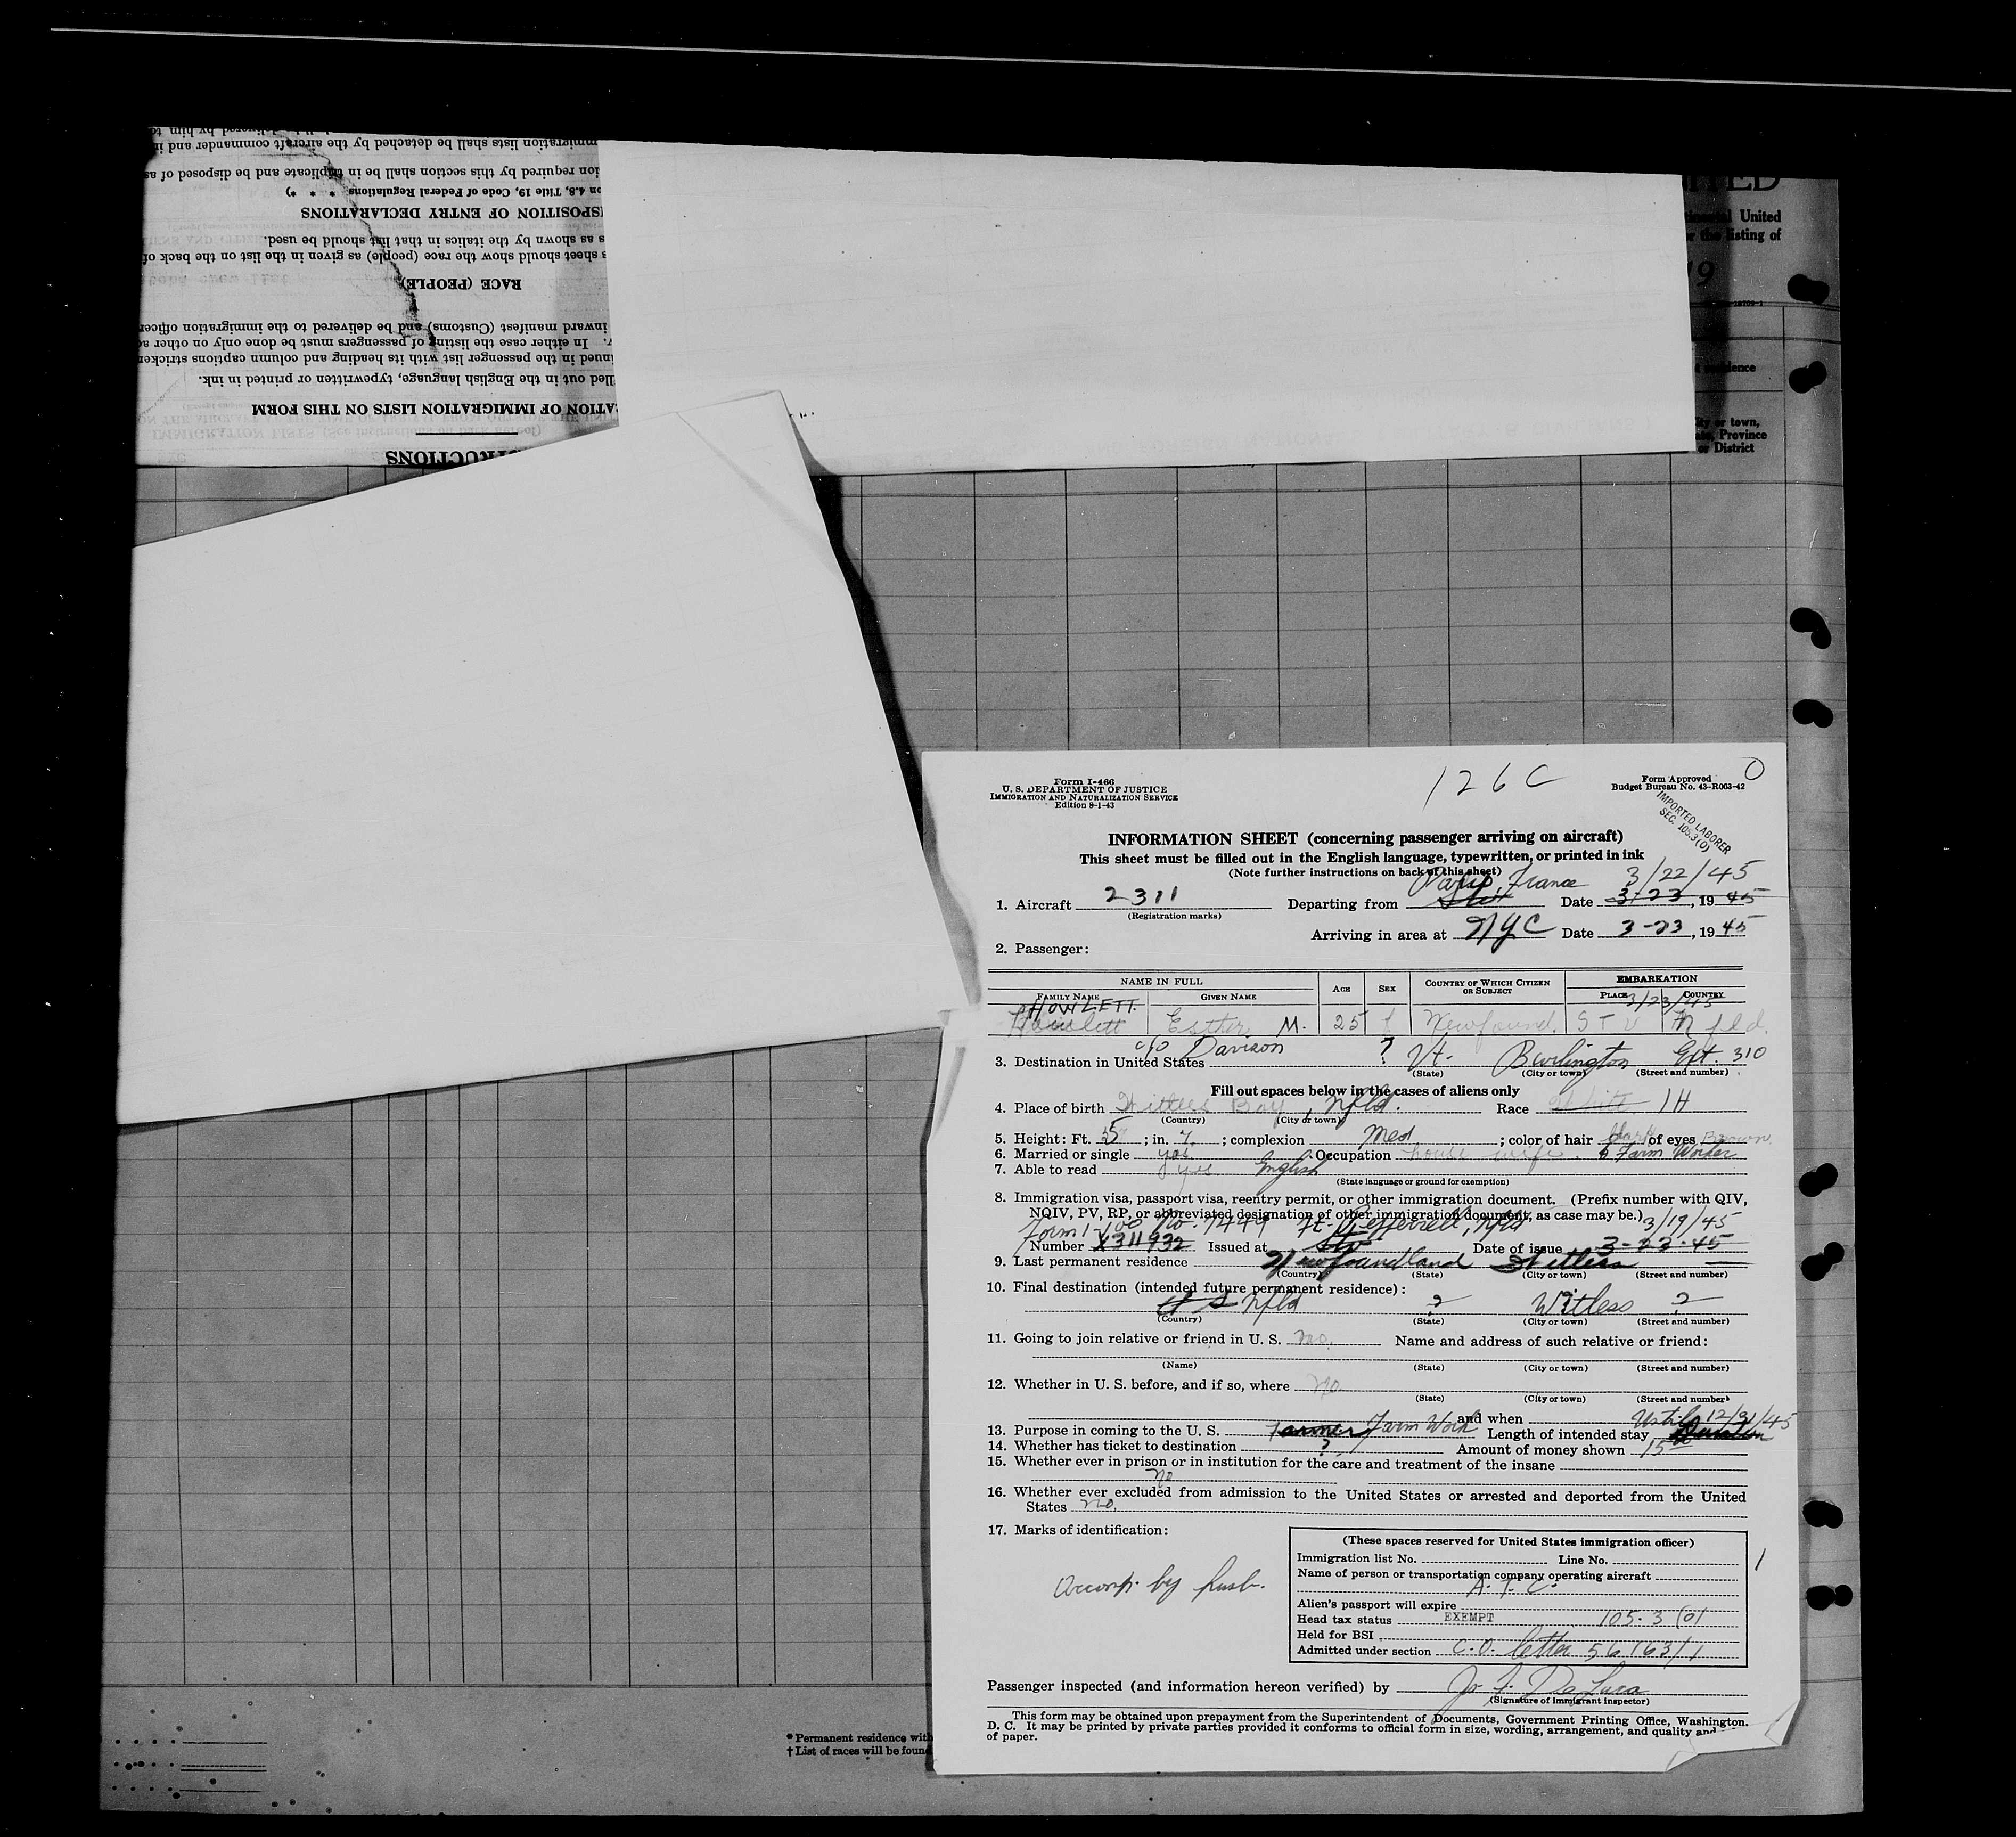 immigration lists shall be detached by the aircraft commander and
ion required by this section shall be in triplicate and be disposed of as
on 4.8, Title 19, Code of Federal Regulations * * *)
ISPOSITION OF ENTRY DECLARATIONS
s as shown by the italics in that list should be used.
s sheet should show the race (people) as given in the list on the back of
RACE (PEOPLE)
inward manifest (Customs) and be delivered to the immigration officer
In either case the listing of passengers must be done only on other
nued in the passenger list with its heading and column captions stricken
lled out in the English language, typewritten or printed in ink.
ATION OF IMMIGRATION LISTS ON THIS FORM
STRUCTIONS
United
or the listing of
19
City or town,
Province
or District
Form I-466
U. S. DEPARTMENT OF JUSTICE
IMMIGRATION AND NATURALIZATION SERVICE
Edition 8-1-43
126C
Form Approved
Budget Bureau No. 43-R063-42
0
IMPORTED LABORER
SEC. 105.3(0)
INFORMATION SHEET (concerning passenger arriving on aircraft)
This sheet must be filled out in the English language, typewritten, or printed in ink
(Note further instructions on back of this sheet)
Paris, France 3/22/45
1. Aircraft 2311 Departing from Stv Date 3-23, 1945
(Registration marks)
Arriving in area at NYC Date 3-23, 1945
2. Passenger:
NAME IN FULL AGE SEX COUNTRY OF WHICH CITIZEN OR SUBJECT EMBARKATION
FAMILY NAME GIVEN NAME PLACE COUNTRY
HOWLETT 3/23/45
Howlett Esther M. 25 f Newfound. STV Nfld.
c/o Davison ? Vt. Burlington Ext. 310
3. Destination in United States
(State) (City or town) (Street and number)
Fill out spaces below in the cases of aliens only
4. Place of birth Witless Bay, Nfld. Race White IH
(Country) (City or town)
5. Height: Ft. 5; in. 7; complexion Med; color of hair dark of eyes Brown
6. Married or single yes Occupation house wife. Farm Worker
7. Able to read yes English
(State language or ground for exemption)
8. Immigration visa, passport visa, reentry permit, or other immigration document. (Prefix number with QIV,
NQIV, PV, RP, or abbreviated designation of other immigration document, as case may be.)
Form I-100 No. 7449 Ft. Pepperrell, Nfld 3/19/45
Number X311932 Issued at Stv Date of issue 3-23-45
9. Last permanent residence Newfoundland Witless —
(Country) (State) (City or town) (Street and number)
10. Final destination (intended future permanent residence):
U S Nfld ? Witless ?
(Country) (State) (City or town) (Street and number)
11. Going to join relative or friend in U. S. no. Name and address of such relative or friend:
(Name) (State) (City or town) (Street and number)
12. Whether in U. S. before, and if so, where No
(State) (City or town) (Street and number)
and when Until 12/31/45
13. Purpose in coming to the U. S. Farmer Farm Work Length of intended stay Duration
14. Whether has ticket to destination ? Amount of money shown 15.00
15. Whether ever in prison or in institution for the care and treatment of the insane
no
16. Whether ever excluded from admission to the United States or arrested and deported from the United
States no.
17. Marks of identification:
Accomp. by husb.
(These spaces reserved for United States immigration officer)
Immigration list No. Line No. 1
Name of person or transportation company operating aircraft
A. T. C.
Alien's passport will expire
Head tax status EXEMPT 105.3 (0)
Held for BSI
Admitted under section C.O. letter 56163/1
Passenger inspected (and information hereon verified) by
(Signature of immigrant inspector)
This form may be obtained upon prepayment from the Superintendent of Documents, Government Printing Office, Washington,
D. C. It may be printed by private parties provided it conforms to official form in size, wording, arrangement, and quality and
of paper.
* Permanent residence with
† List of races will be found